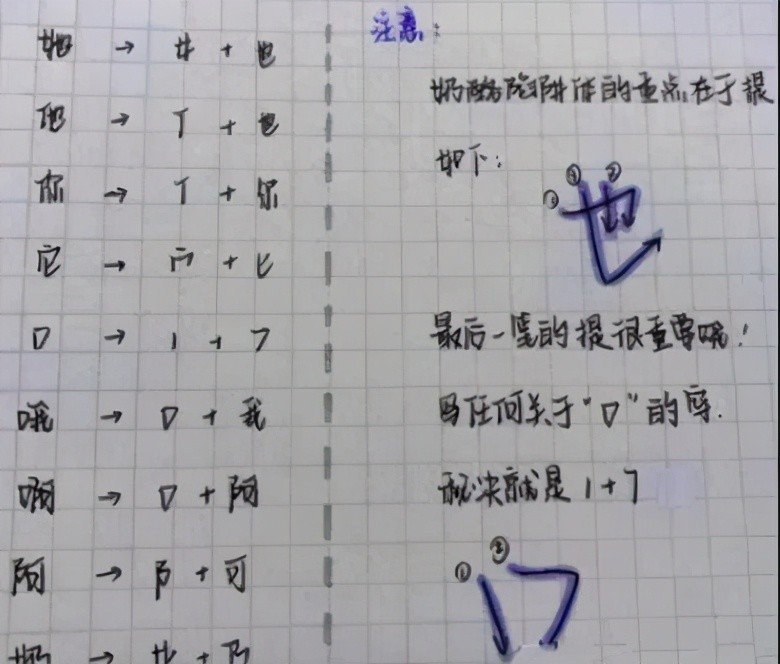 她 → 女 + 也
他 → 亻 + 也
你 → 亻 + 尔
它 → 宀 + 匕
口 → 1 + 7
哦 → 口 + 我
啊 → 口 + 阿
阿 → 阝 + 可
奶 → 女 + 乃
注意:
奶酪陷阱体的重点在于提
如下:
① ③ ②
也
最后一笔的提很重要哦!
写任何关于“口”的字.
秘决就是 1+7
① ②
口